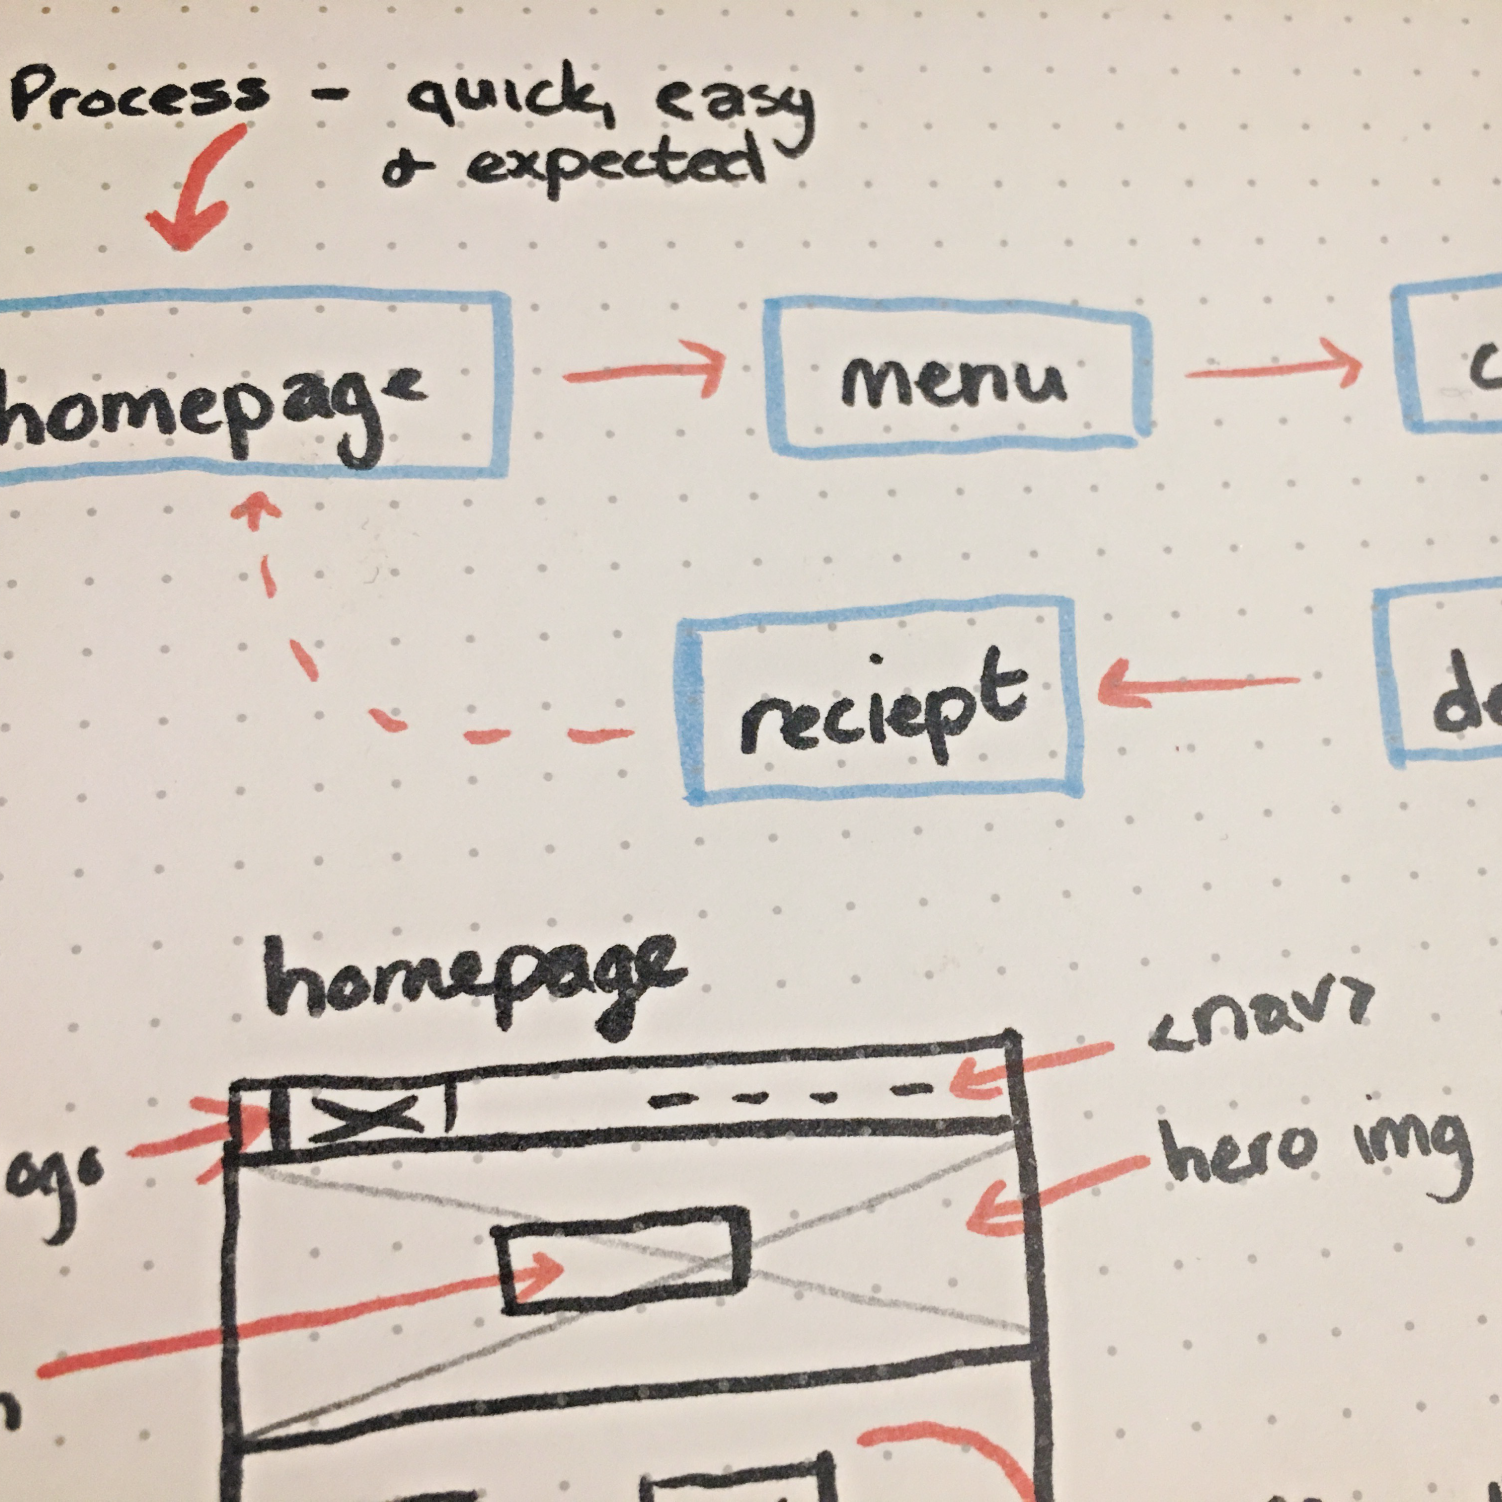 Process - quick, easy
& expected
homepage
menu
reciept
homepage
<nav>
hero img